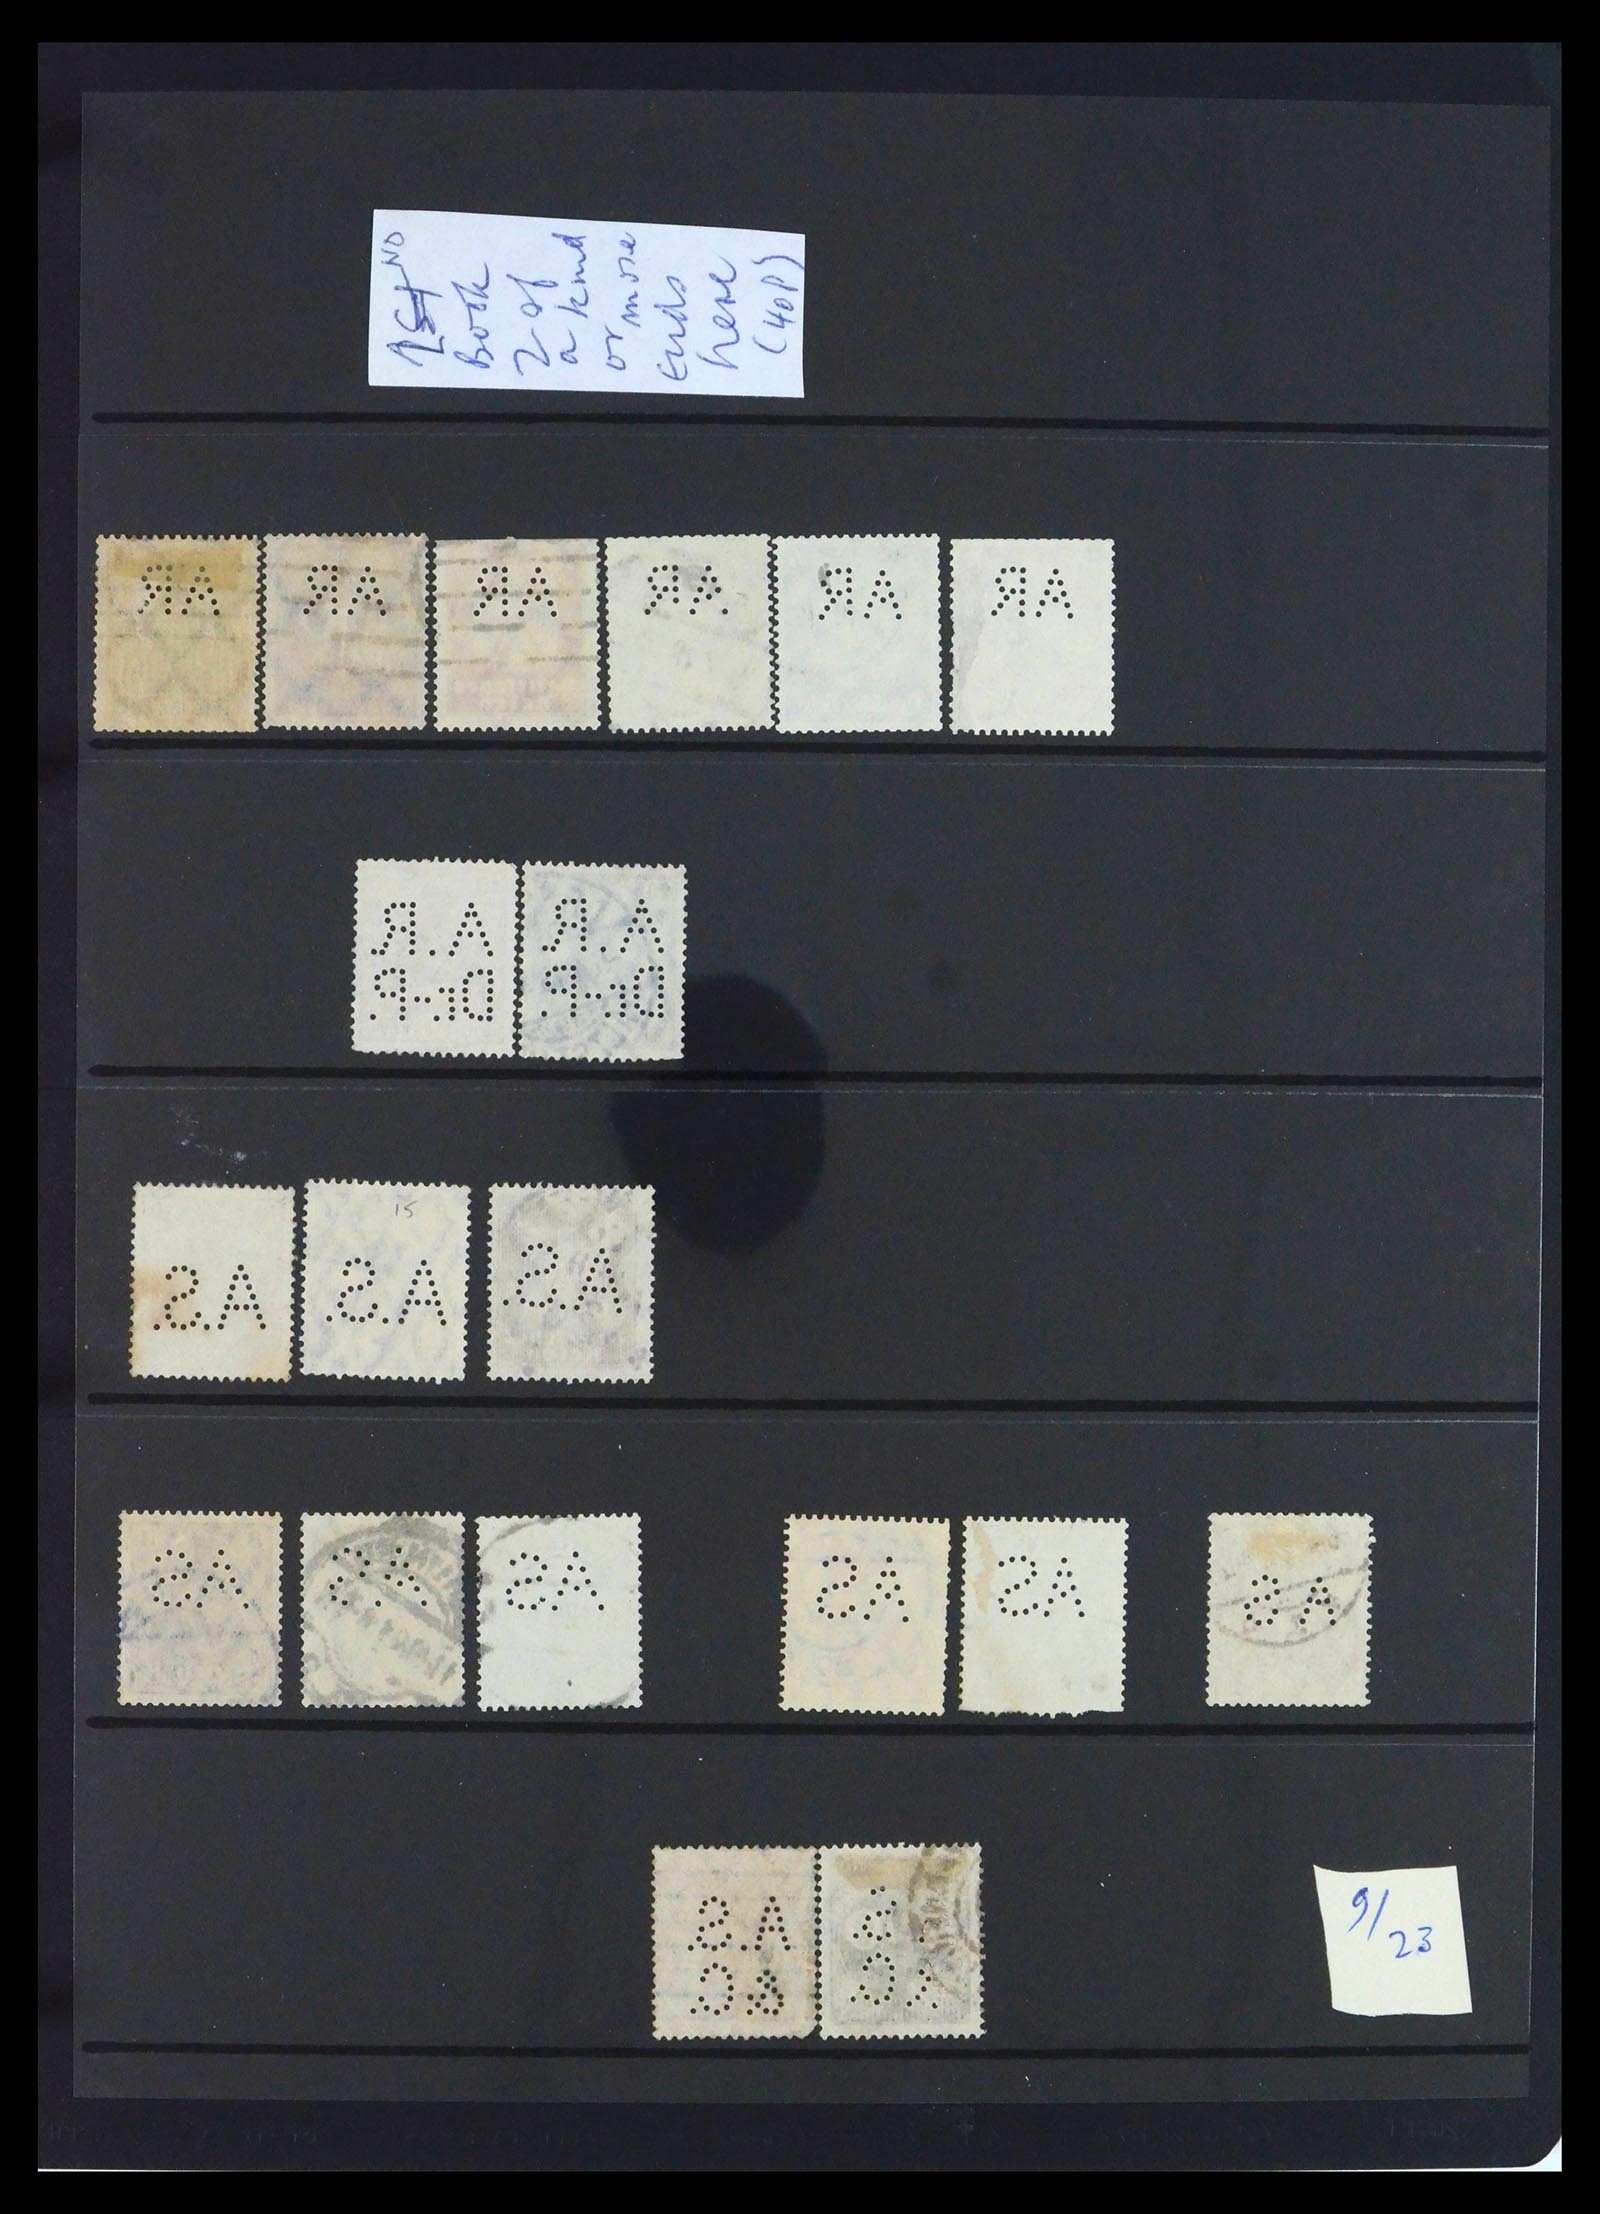 1st ND
Book
2 of
a kind
or more
ends
here
(40P)
AR AR AR AR AR AR
A.R. A.R.
Dr-P. Dr-P.
15
A.S. A.S. A.S.
AS AS AS AS AS AS
A.S. S.
&C. &C
9/23